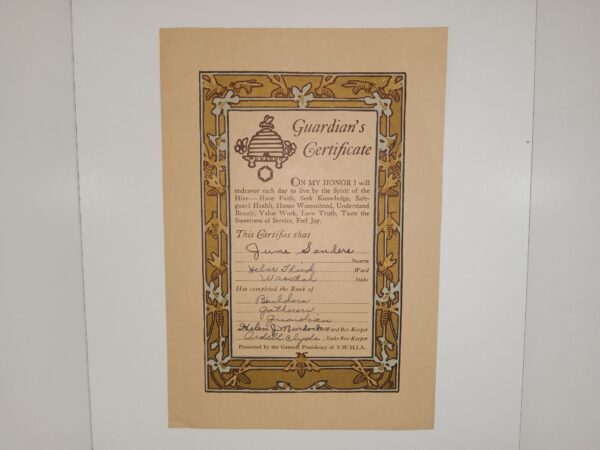 Guardian's
Certificate
ON MY HONOR I will
endeavor each day to live by the Spirit of the
Hive — Have Faith, Seek Knowledge, Safe-
guard Health, Honor Womanhood, Understand
Beauty, Value Work, Love Truth, Taste the
Sweetness of Service, Feel Joy.
This Certifies that
June Sanders
Swarm
Heber Third Ward
Wasatch Stake
Has completed the Rank of
Builders
Gatherers
Guardian
Helen J. Murdock Ward Bee-Keeper
Ardell Clyde Stake Bee-Keeper
Presented by the General Presidency of Y.W.M.I.A.